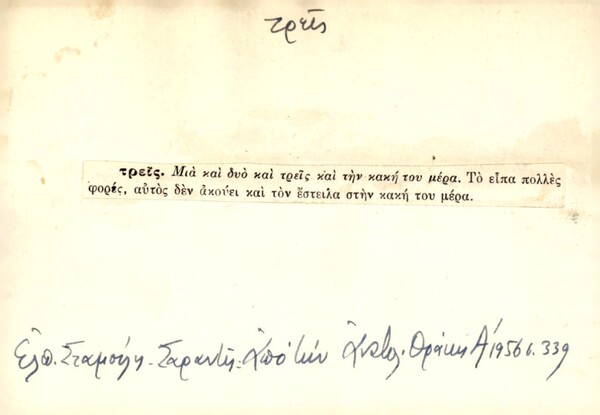 τρεῖς
τρεῖς. Μιὰ καὶ δυὸ καὶ τρεῖς καὶ τὴν κακή του μέρα. Τὸ εἶπα πολλὲς
φορές, αὐτὸς δὲν ἀκούει καὶ τὸν ἔστειλα στὴν κακή του μέρα.
Ἐλπ. Σταμούλη - Σαραντῆ - Ἀπὸ τὴν Ἀνατολ. Θράκη Α' 1956 σ. 339